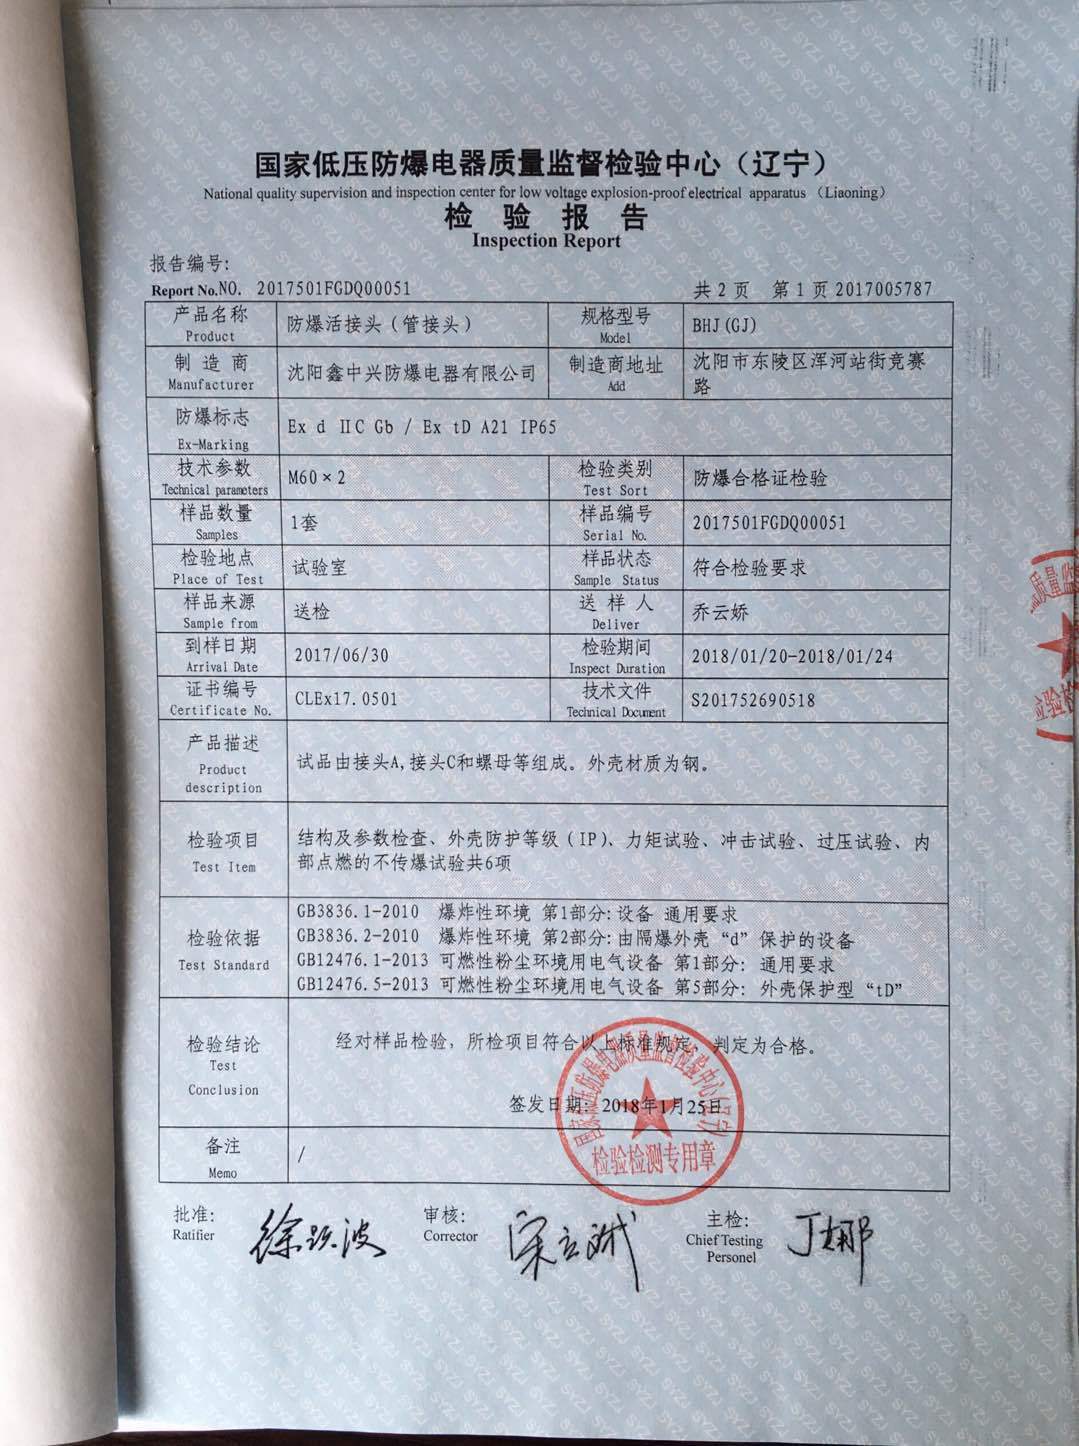 国家低压防爆电器质量监督检验中心（辽宁）
National quality supervision and inspection center for low voltage explosion-proof electrical apparatus （Liaoning）
检 验 报 告
Inspection Report
报告编号:
Report No.NO. 2017501FGDQ00051 共 2 页 第 1 页 2017005787
产品名称 防爆活接头（管接头） 规格型号 BHJ(GJ)
Product Model
制 造 商 沈阳鑫中兴防爆电器有限公司 制造商地址 沈阳市东陵区浑河站街竞赛
Manufacturer Add 路
防爆标志 Ex d ⅡC Gb / Ex tD A21 IP65
Ex-Marking
技术参数 M60×2 检验类别 防爆合格证检验
Technical parameters Test Sort
样品数量 1套 样品编号 2017501FGDQ00051
Samples Serial No.
检验地点 试验室 样品状态 符合检验要求
Place of Test Sample Status
样品来源 送检 送 样 人 乔云娇
Sample from Deliver
到样日期 2017/06/30 检验期间 2018/01/20-2018/01/24
Arrival Date Inspect Duration
证书编号 CLEx17.0501 技术文件 S201752690518
Certificate No. Technical Document
产品描述 试品由接头A,接头C和螺母等组成。外壳材质为钢。
Product
description
检验项目 结构及参数检查、外壳防护等级（IP）、力矩试验、冲击试验、过压试验、内
Test Item 部点燃的不传爆试验共6项
GB3836.1-2010 爆炸性环境 第1部分:设备 通用要求
检验依据 GB3836.2-2010 爆炸性环境 第2部分:由隔爆外壳“d”保护的设备
Test Standard GB12476.1-2013 可燃性粉尘环境用电气设备 第1部分: 通用要求
GB12476.5-2013 可燃性粉尘环境用电气设备 第5部分: 外壳保护型“tD”
检验结论 经对样品检验，所检项目符合以上标准规定，判定为合格。
Test
Conclusion
签发日期: 2018年1月25日
国家低压防爆电器质量监督检验中心(辽宁)
检验检测专用章
备注 /
Memo
批准: 徐跃波 审核: 宋立斌 主检: 丁娜
Ratifier Corrector Chief Testing
Personel
质量监
检验检